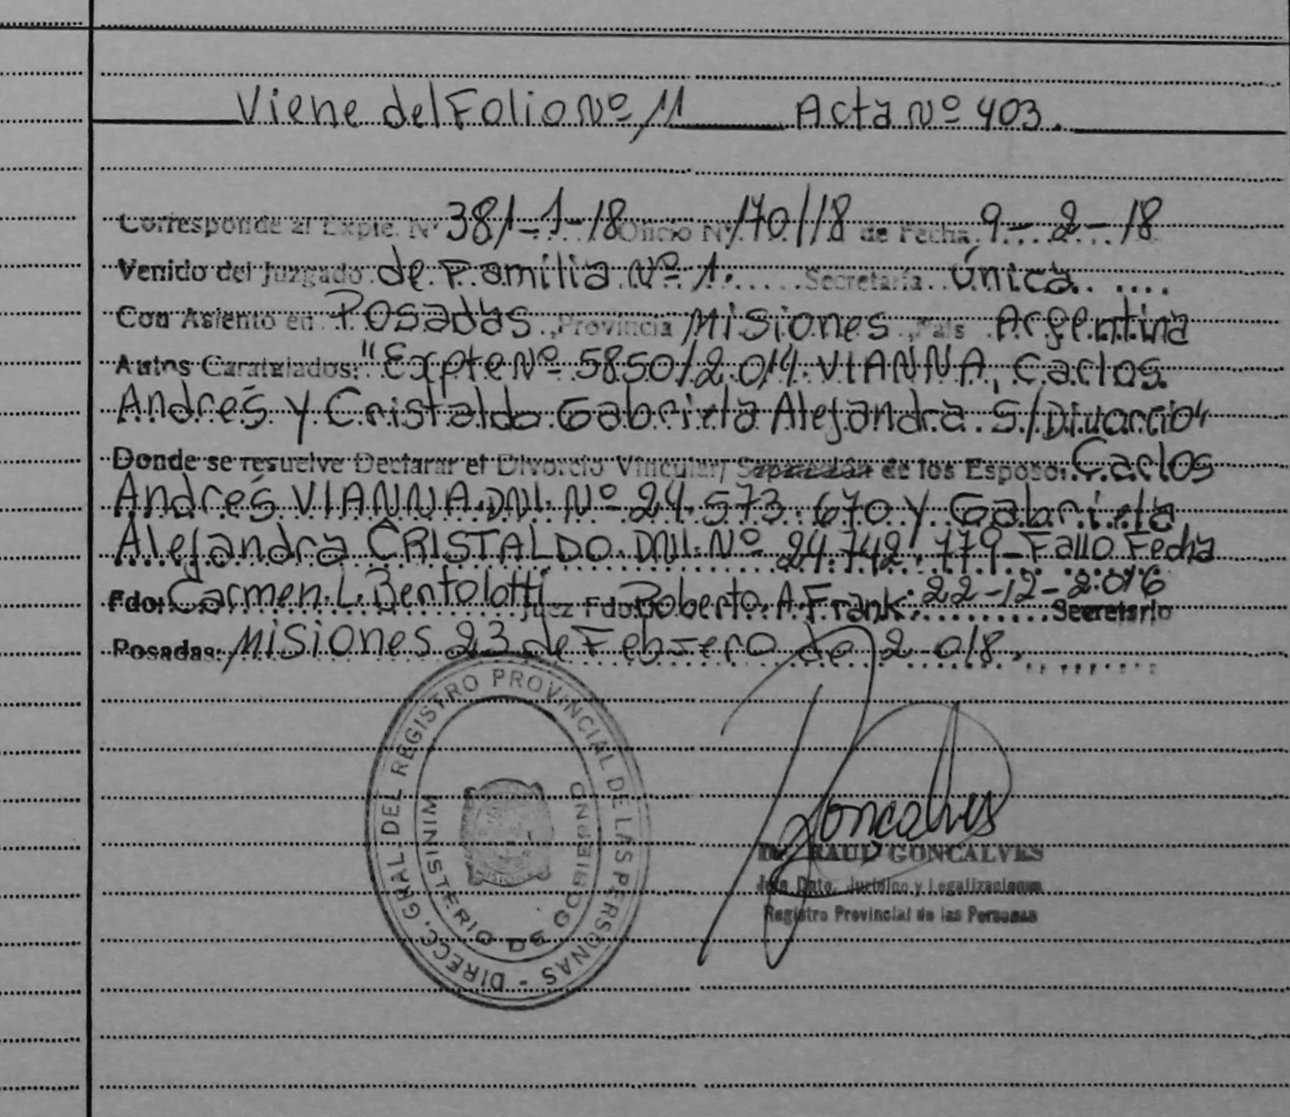 Viene del Folio Nº 11 Acta Nº 403.
Corresponde al Expte. Nº 381-1-18 Oficio Nº 170/18 de Fecha 9-2-18
Venido del Juzgado de Familia Nº 1. Secretaría única
Con Asiento en Posadas, Provincia Misiones, País Argentina
Autos Caratulados: "Expte Nº 5850/2.014 VIANNA, Carlos
Andrés y Cristaldo Gabriela Alejandra S/Divorcio"
Donde se resuelve Declarar el Divorcio Vincular/ Separación de los Esposo: Carlos
Andrés VIANNA DNI. Nº 24.573.670 y Gabriela
Alejandra CRISTALDO DNI. Nº 24.742.779-Fallo Fecha
22-12-2.016
Fdo: Carmen L. Juez Fdo Roberto A. Frank: Secretario
Posadas: Misiones 23 de Febrero de 2.018.
DIRECC. GRAL. DEL REGISTRO PROVINCIAL DE LAS PERSONAS -
MINISTERIO DE GOBIERNO
Goncalves
Dr. RAUL GONCALVES
Jefe Dpto. Jurídico y Legalizaciones
Registro Provincial de las Personas